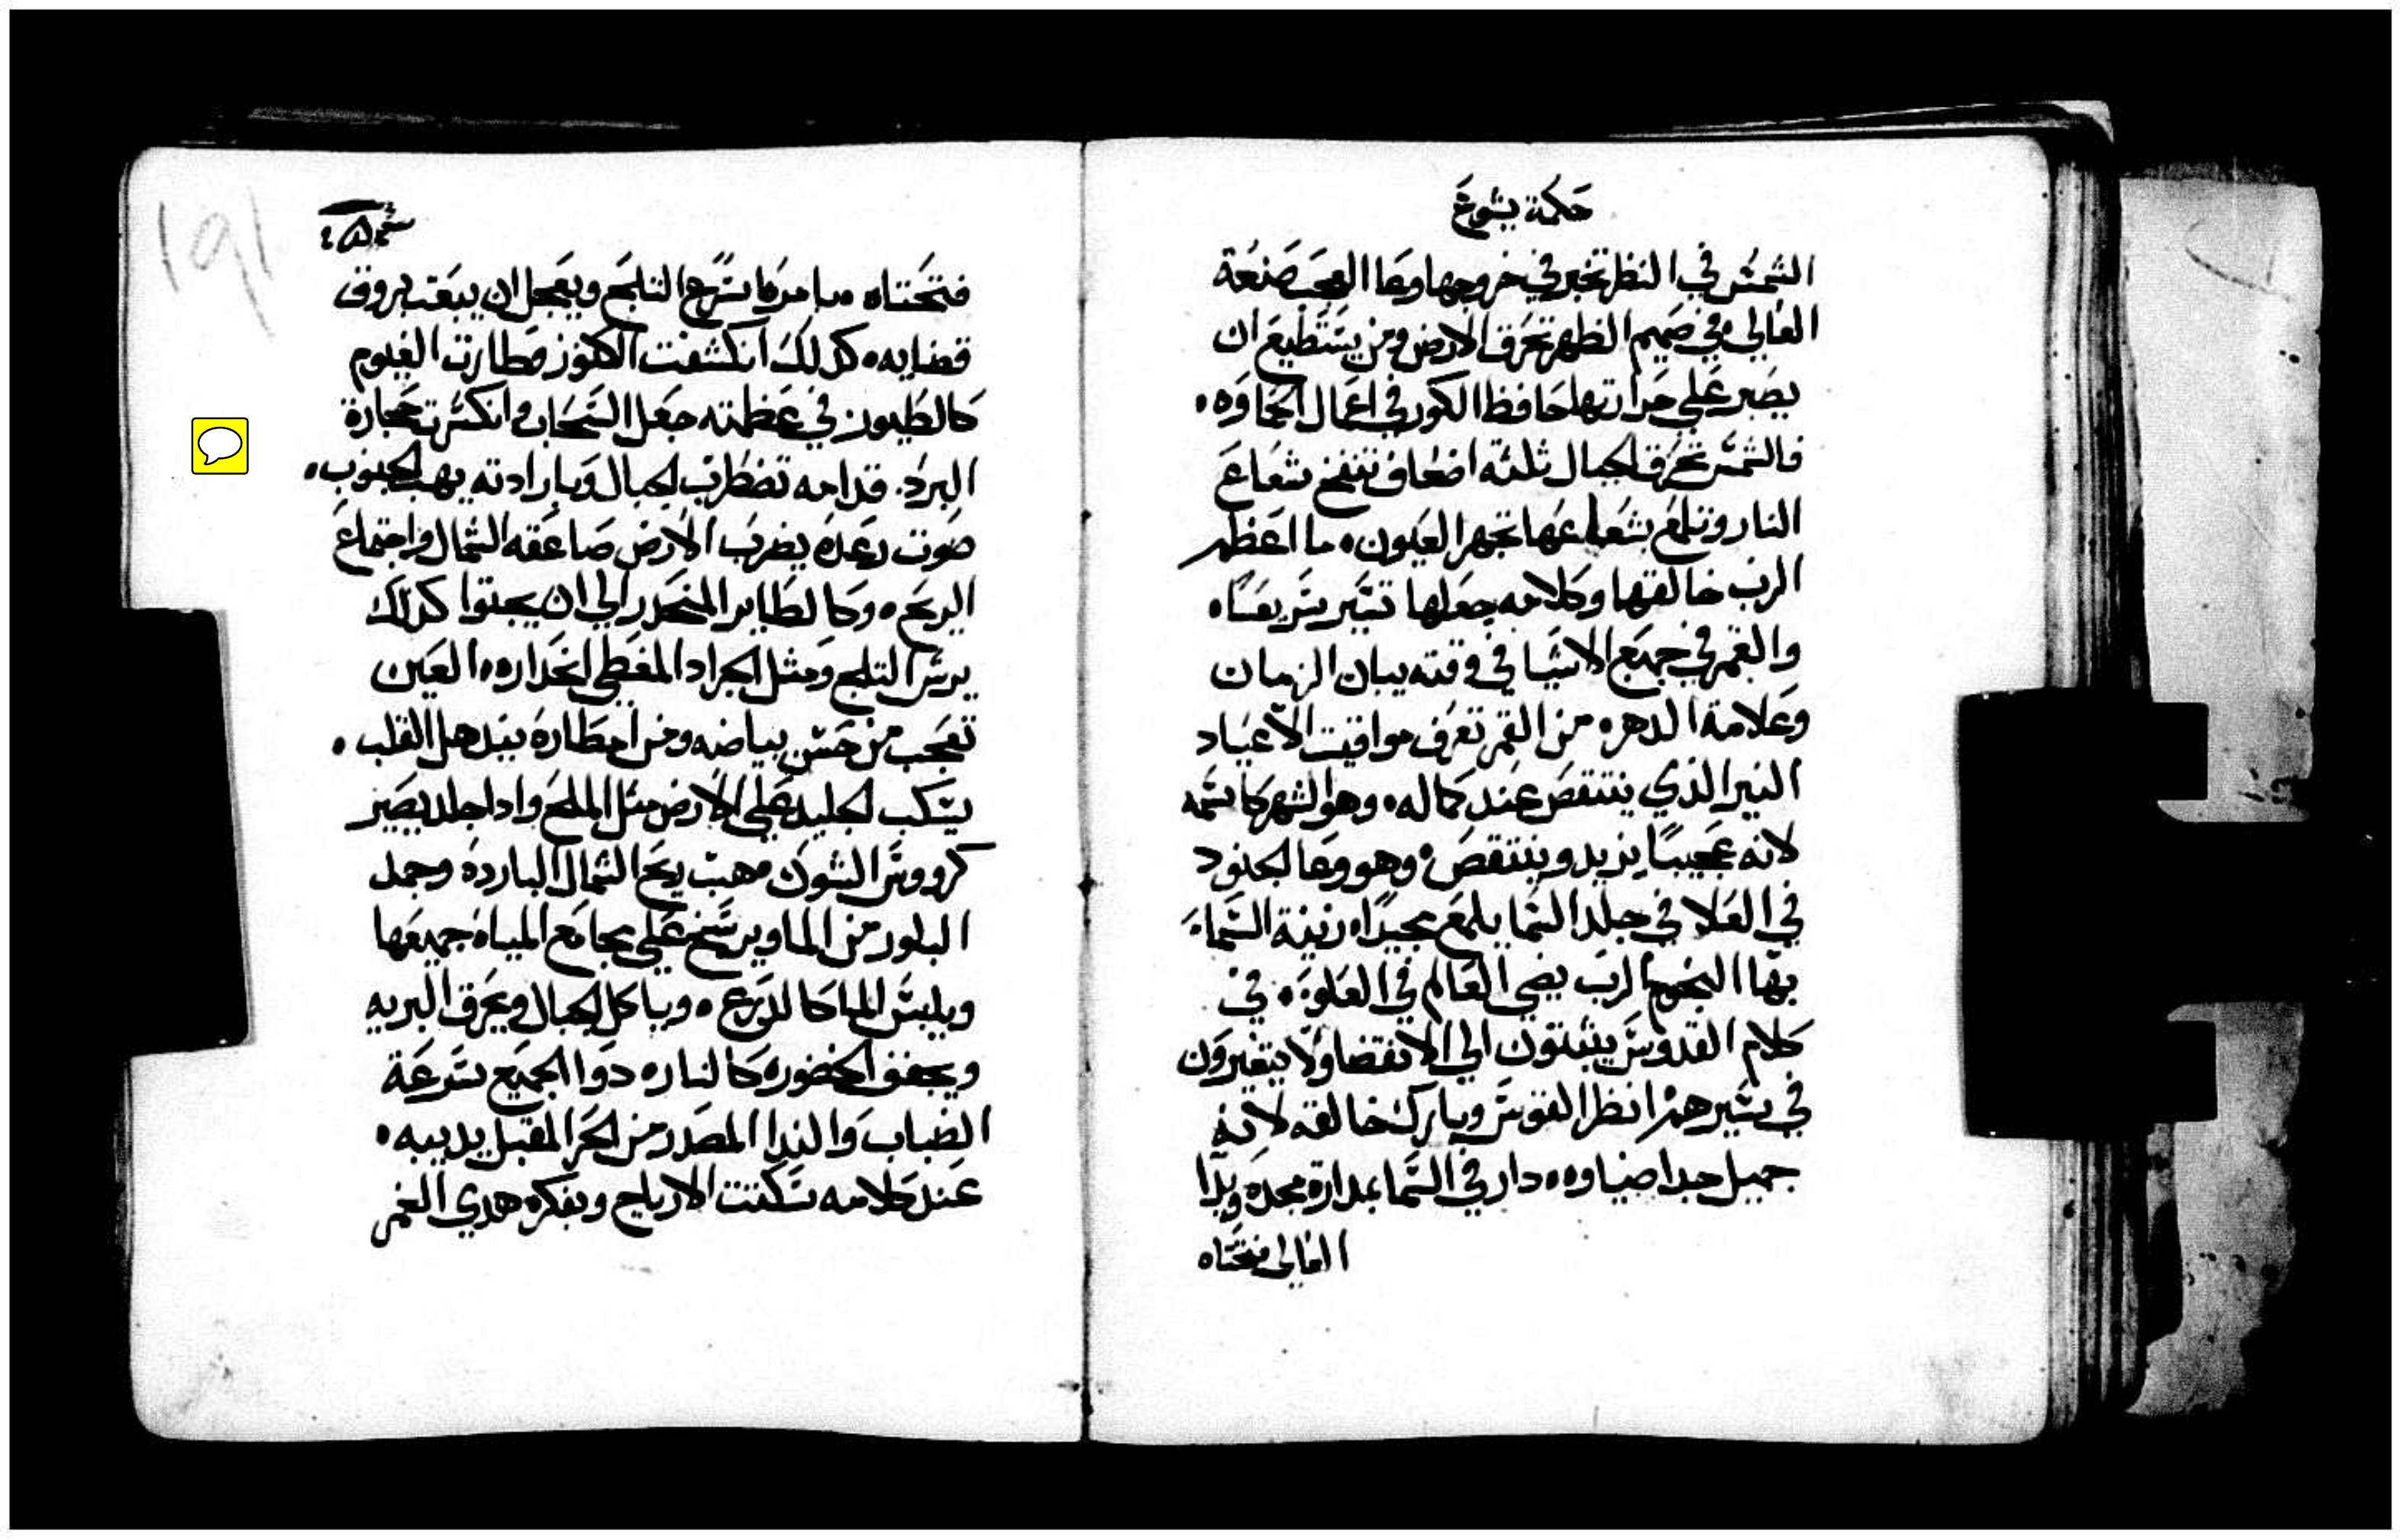 حكمة يشوع
الشمس في النظر تخبر في خروجها وعا العجب صنعة
العالي وفي صميم الظهر تحرق الارض ومن يستطيع ان
يصبر علي حرارتها حافظ الكور في اعمال الحماوه ٠
فالشمس تحرق الجبال ثلثة اضعاف تنفخ شعاع
النار وتلمع بشعاعها تجهر العيون ٠ ما اعظم
الرب خالقها وكلامه جعلها تسير سريعا ٠
والقمر في جميع الاشيا في وقته يبان الزمان
وعلامة الدهر ٠ من القمر تعرف مواقيت الاعياد
النير الذي ينتقص عند كماله ٠ وهو الشهر كاسمه
لانه عجيبا يزيد وينتقص ٠ وهو وعا الجنود
في العلا في جلد السما يلمع مجيدا ٠ زينة السما
بها النجوم الرب يضي العالم في العلو ٠ في
كلام القدوس يثبتون الي الانقضا ولا يتغيرون
في سيرهم انظر القوس وبارك خالقه لانه
جميل جدا ضياوه ٠ دار في السما بمدارة مجده ويدا
العالي فتحتاه
سح ٤٥
فتحتاه ٠ بامره اسرع الثلج ويعجل ان يبعت بروق
قضايه ٠ كذلك انكشفت الكنوز وطارت الغيوم
كالطيور في عظمته جعل السحاب وانكسرت حجارة
البرد ٠ قدامه تضطرب الجبال وبارادته يهب الجنوب ٠
صوت رعده يضرب الارض صاعقه الشمال واجتماع
الريح ٠ وكالطاير المنحدر الي ان يجتوا كذلك
يرش الثلج ومثل الجراد المغطي انحداره ٠ العين
تعجب من حسن بياضه ومن امطاره يندهل القلب ٠
يسكب الجليد علي الارض مثل الملح واذا جلد يصير
كرووس الشوك وهبت ريح الشمال البارده وجمد
البلور من الما ويرسخ علي مجامع المياه جميعها
ويلبس الما كالدرع ٠ وياكل الجبال ويحرق البريه
ويجفف الخضوره كالنار ٠ دوا الجميع سرعة
الضباب والندا المصدر من الحر المقبل يديبه ٠
عند كلامه سكنت الارياح وبفكره هدي الغمر